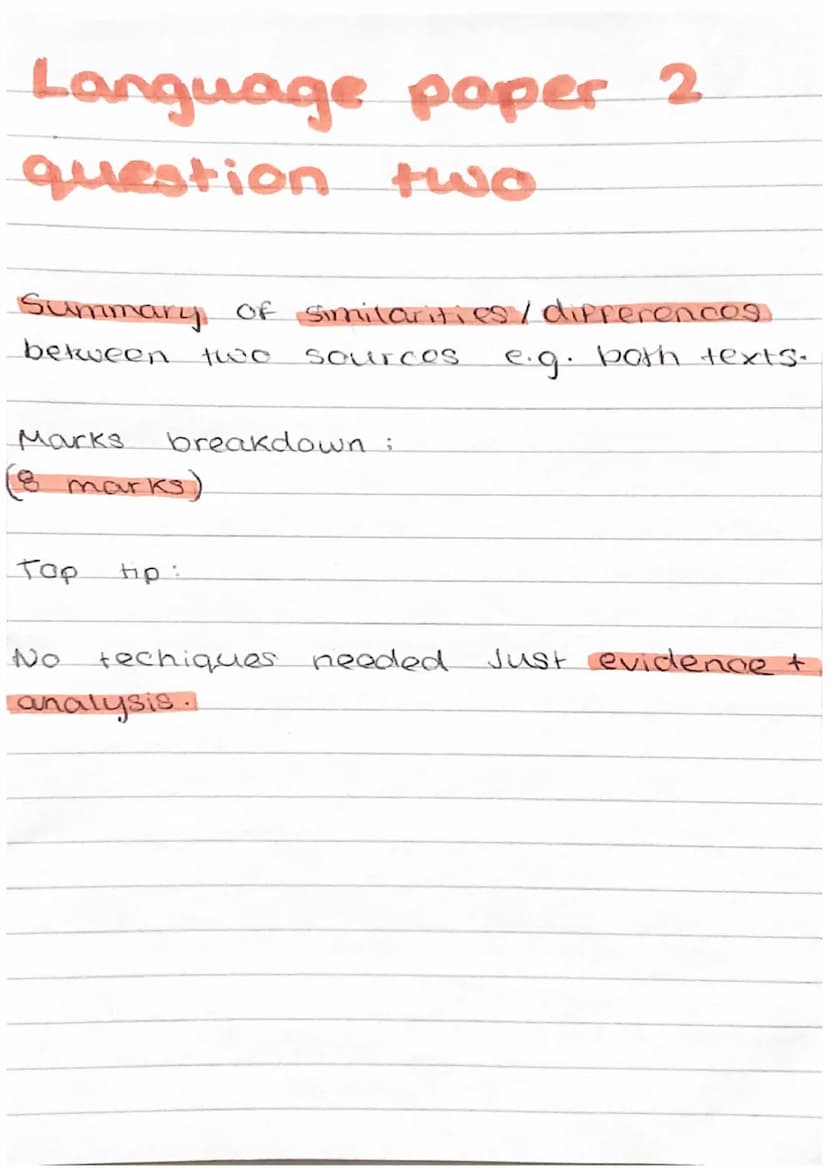 Language paper 2
question two
Summary of similarities / differences
between two sources e.g. both texts.
Marks breakdown :
(8 marks)
Top tip :
No techiques needed Just evidence +
analysis.